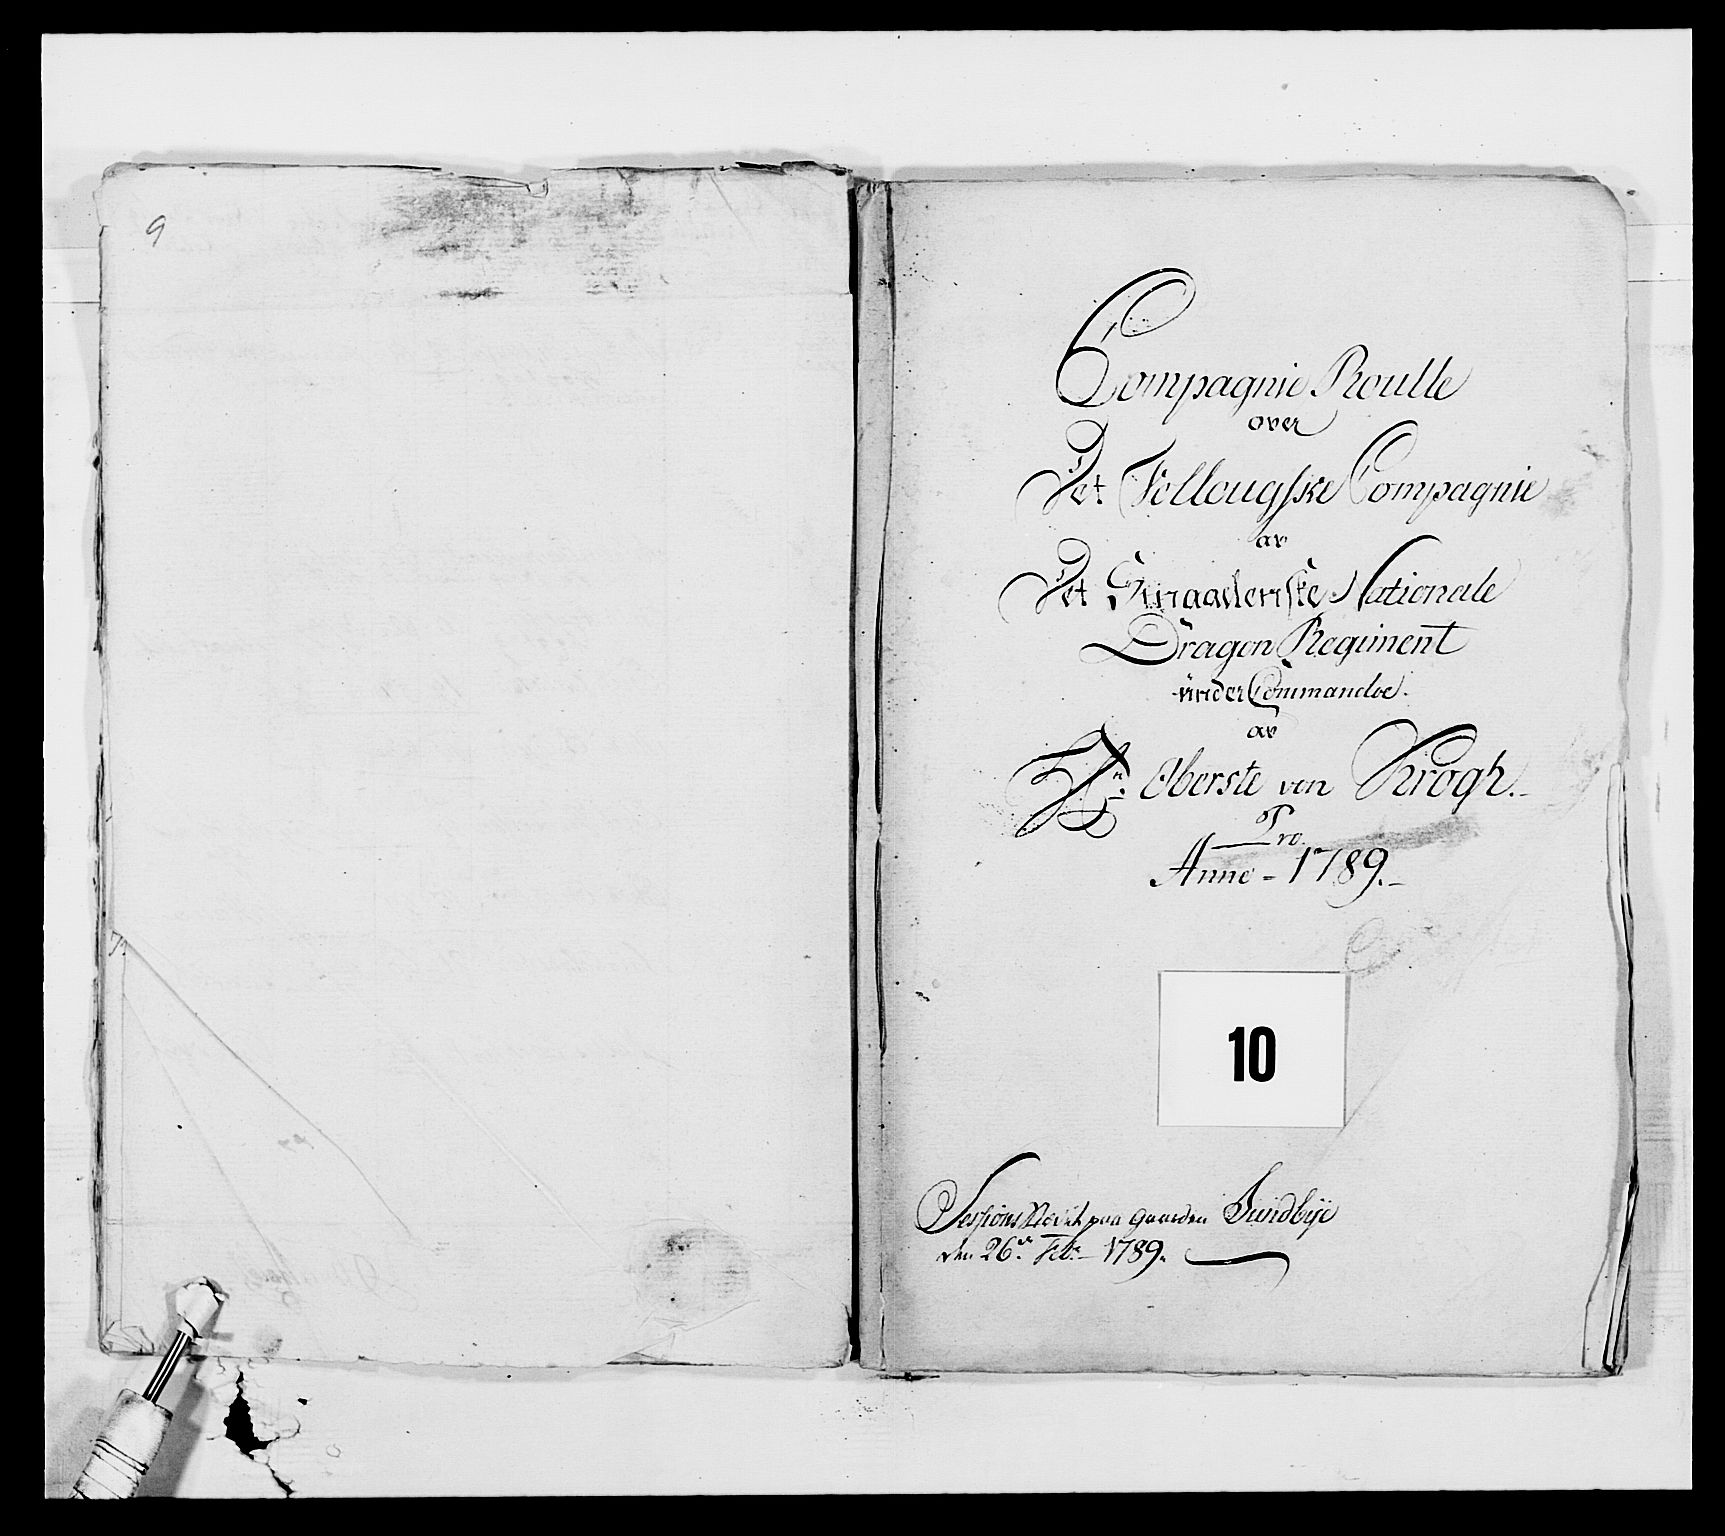 9
Compagnie Roulle
over
Det Follougske Compagnie
av
Det Smaalenske Nationale
Dragon Regiment
under Commandoe.
av
Hr. Oberste von Krogh.
Pro.
Anno - 1789.
10
Sessions Holdt paa Gaarden Sundbye
den 26de Febr. 1789.